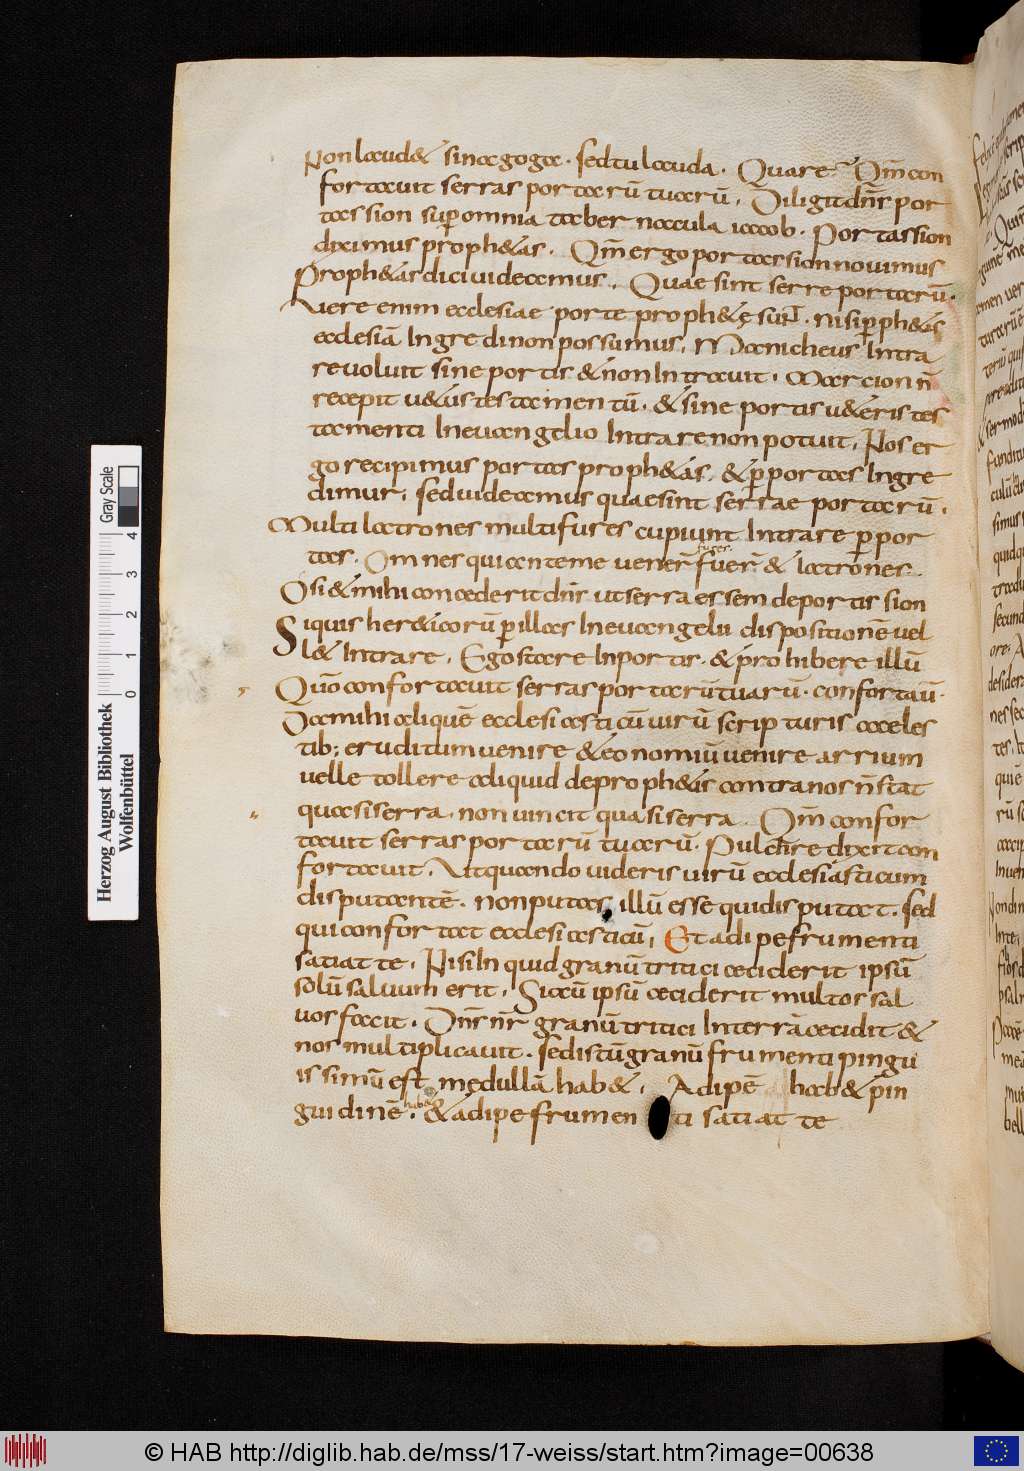 Non laud& sinagoga. sed tu lauda. Quare? Qm̄ con
fortauit serras portarū tuarū. Diligit dn̄s por
tas sion sup̄ omnia tabernacula iacob. Portas sion
diximus proph&as. Qm̄ ergo portas sion nouimus
Proph&as dici uideamus. Quae sint serre portarū.
Uere enim ecclesiae porte proph&ę sunt. nisi p̄ proph&as
ecclesiā Ingredi non possumus. Manicheus Intra
re uoluit sine portis & non Intrauit. Marcion n̄
recepit u&us testamentū. & sine portis u&eris tes
tamenti In euangelio Intrare non potuit. Nos er
go recipimus portas proph&as. & p̄ portas Ingre
dimur. sed uideamus quae sint serrae portarū.
Multi latrones multi fures cupiunt Intrare p̄ por
tas. Omnes qui ante me uener̄ fures fuer̄ & latrones.
O si & mihi concederit dn̄s ut serra essem de portis sion
Si quis her&icorū p̄ illas In euangelii dispositionē uel
l& Intrare. Ego stare In portis. & prohibere illū
Quō confortauit serras portarū tuarū. confortaū.
Da mihi aliquē ecclesiasticū uirū scripturis caeles
tib; eruditum uenire & eonomiū uenire arrium
uelle tollere aliquid de proph&is contra nos n̄ stat
quasi serra. non uincit quasi serra. Qm̄ confor
tauit serras portarū tuarū. Pulchre dixit con
fortauit. Ut quando uideris uirū ecclesiasticum
disputantē. non putas illū esse qui disputat. sed
qui confortat ecclesiasticū. Et adipe frumenti
satiat te. Nisi In quid granū tritici ceciderit ipsū
solū saluum erit. Si autē ipsū ceciderit multos sal
uos facit. Dn̄s nr̄ granū tritici In terrā cecidit &
nos multiplicauit. sed istū granū frumenti pingu
issimū est medullā hab&. Adipē hab& pin
guidinē hab&. & adipe frumenti satiat te
Herzog August Bibliothek
Wolfenbüttel
Gray Scale
0 1 2 3 4
© HAB http://diglib.hab.de/mss/17-weiss/start.htm?image=00638